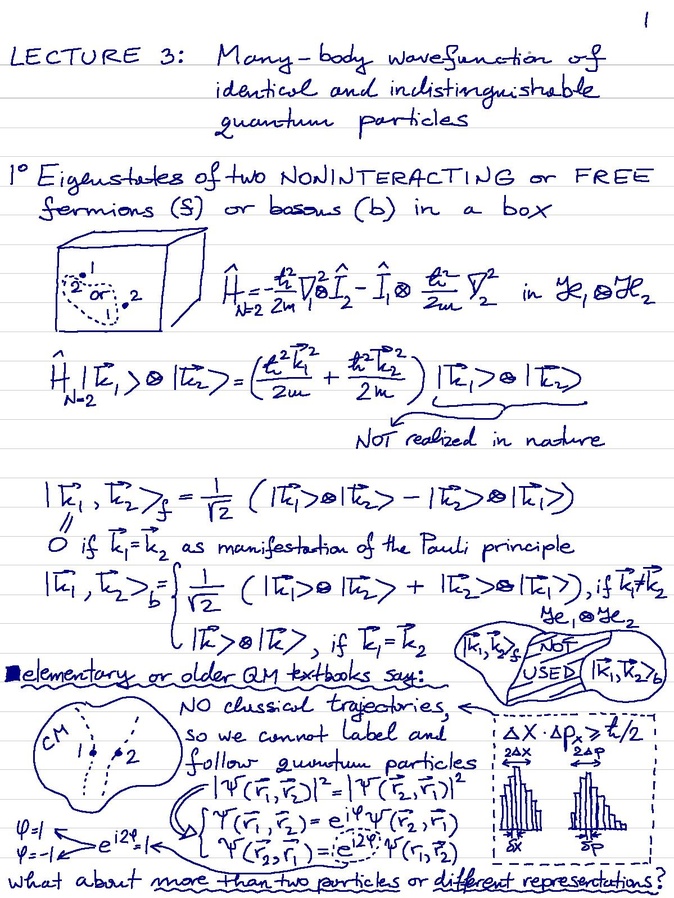 1
LECTURE 3: Many-body wavefunction of
identical and indistinguishable
quantum particles
1° Eigenstates of two NONINTERACTING or FREE
fermions (f) or bosons (b) in a box
1
2 or 2
1
Ĥ_{N=2} = -ħ²/2m ∇₁² ⊗ Î₂ - Î₁ ⊗ ħ²/2m ∇₂² in ℋ₁ ⊗ ℋ₂
Ĥ_{N=2} |k⃗₁> ⊗ |k⃗₂> = (ħ²k⃗₁²/2m + ħ²k⃗₂²/2m) |k⃗₁> ⊗ |k⃗₂>
NOT realized in nature
|k⃗₁, k⃗₂>_f = 1/√2 (|k⃗₁> ⊗ |k⃗₂> - |k⃗₂> ⊗ |k⃗₁>)
||
0 if k⃗₁ = k⃗₂ as manifestation of the Pauli principle
|k⃗₁, k⃗₂>_b = { 1/√2 (|k⃗₁> ⊗ |k⃗₂> + |k⃗₂> ⊗ |k⃗₁>), if k⃗₁ ≠ k⃗₂
|k⃗> ⊗ |k⃗>, if k⃗₁ = k⃗₂
ℋ₁ ⊗ ℋ₂
|k⃗₁, k⃗₂>_f NOT USED |k⃗₁, k⃗₂>_b
elementary or older QM textbooks say:
CM
1 2
NO classical trajectories,
so we cannot label and
follow quantum particles
Δx · Δpₓ ≥ ħ/2
2Δx 2Δp
δx δp
|Ψ(r⃗₁, r⃗₂)|² = |Ψ(r⃗₂, r⃗₁)|²
{ Ψ(r⃗₁, r⃗₂) = e^{iφ} Ψ(r⃗₂, r⃗₁)
Ψ(r⃗₂, r⃗₁) = e^{i2φ} Ψ(r⃗₁, r⃗₂)
φ=1
φ=-1
e^{i2φ} = 1
what about more than two particles or different representations?